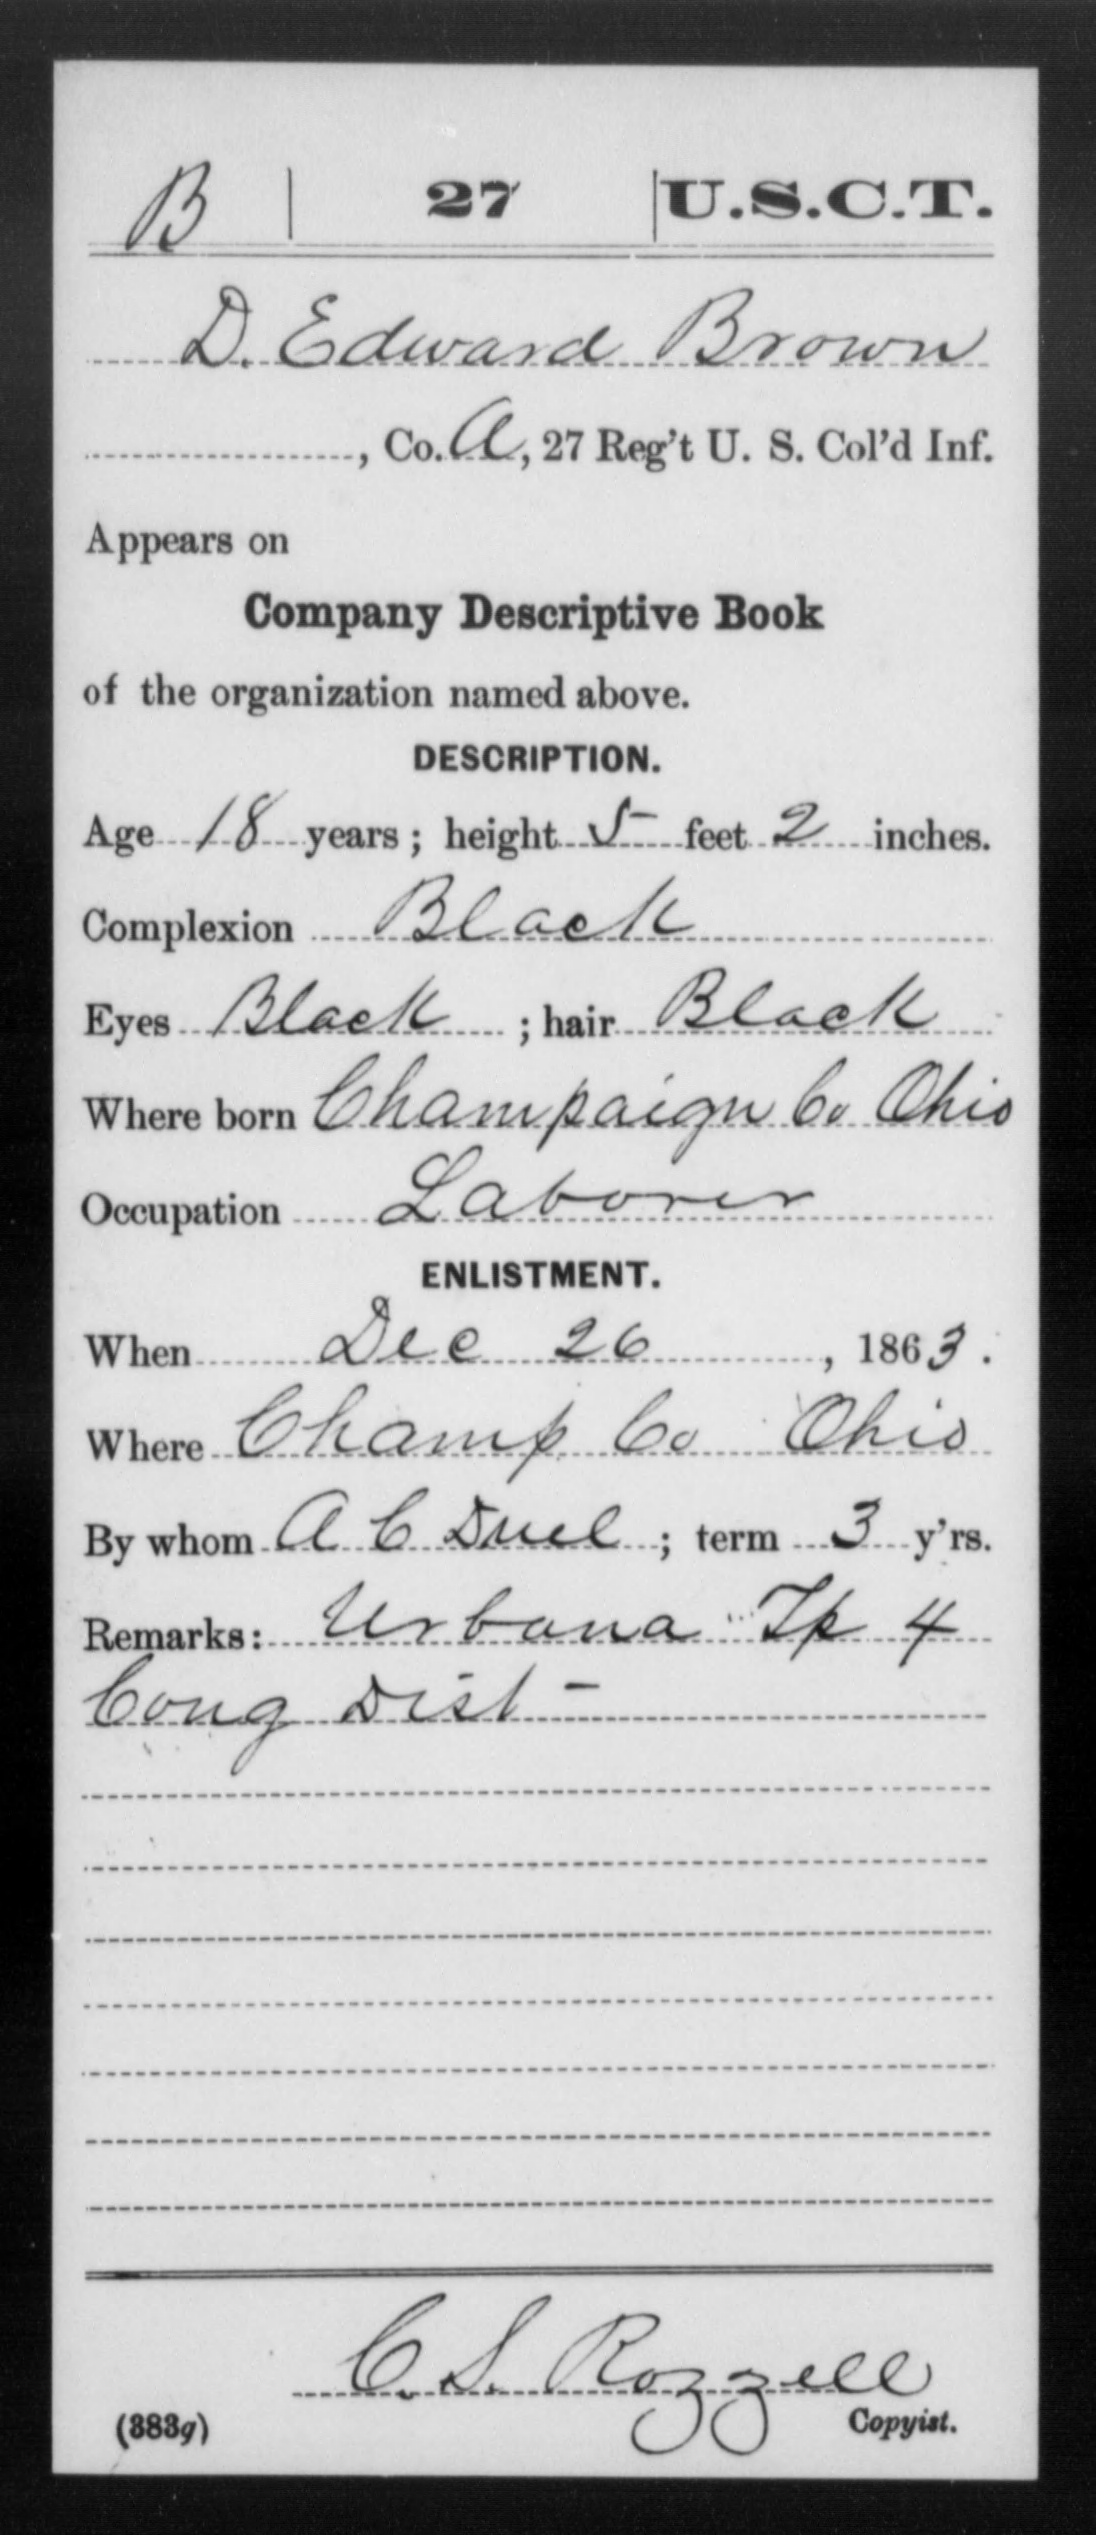 B | 27 | U.S.C.T.
D. Edward Brown
, Co. A, 27 Reg't U. S. Col'd Inf.
Appears on
Company Descriptive Book
of the organization named above.
DESCRIPTION.
Age 18 years; height 5 feet 2 inches.
Complexion Black
Eyes Black; hair Black
Where born Champaign Co Ohio
Occupation Laborer
ENLISTMENT.
When Dec 26, 1863.
Where Champ Co Ohio
By whom A C Duel; term 3 y'rs.
Remarks: Urbana Tp 4
Cong Dist -
C. S. Rozzell
(383g) Copyist.